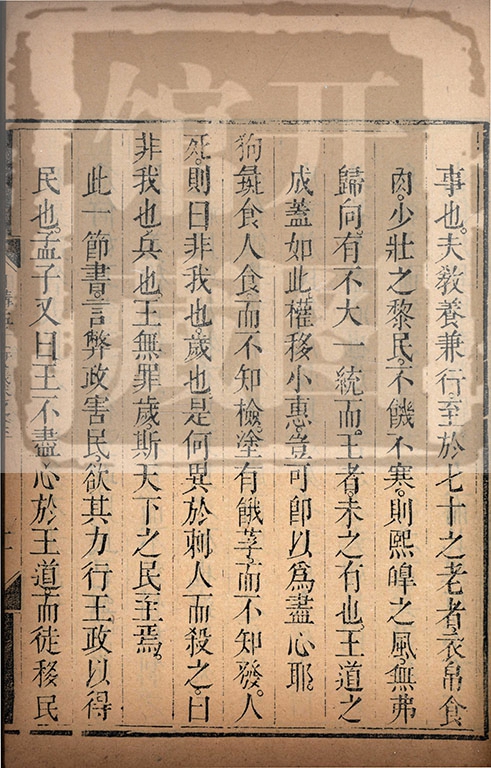 事也。夫教養兼行。至於七十之老者。衣帛食
肉。少壯之黎民。不饑不寒。則熙皞之風。無弗
歸向。有不大一統而王者。未之有也。王道之
成。蓋如此。權移小惠。豈可卽以爲盡心耶。
狗彘食人食而不知檢。塗有餓莩而不知發。人
死。則曰非我也。歲也。是何異於刺人而殺之。曰
非我也兵也。王無罪歲。斯天下之民至焉。
此一節書。言弊政害民。欲其力行王政以得
民也。孟子又曰。王不盡心於王道。而徒移民